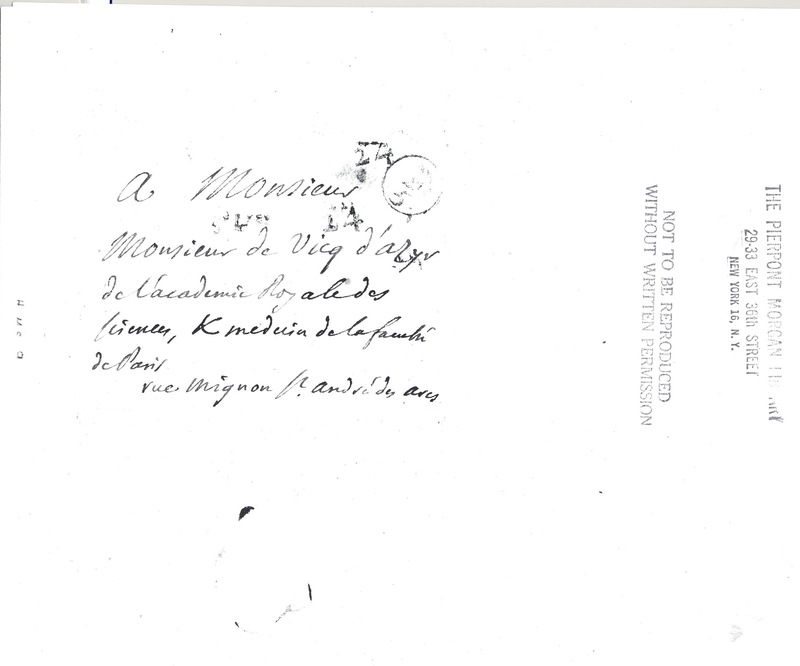 24
A Monsieur
24
Monsieur de Vicq d'azyr
de l'academie Royale des
sciences, & medecin de la faculté
de Paris
rue Mignon St. andré des arcs
NOT TO BE REPRODUCED
WITHOUT WRITTEN PERMISSION
THE PIERPONT MORGAN LIBRARY
29-33 EAST 36th STREET
NEW YORK 16, N. Y.